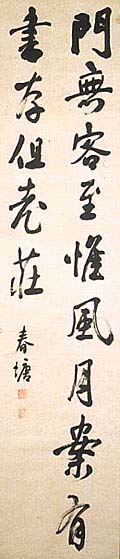 門無客至惟風月案有
書存但老莊
春塘